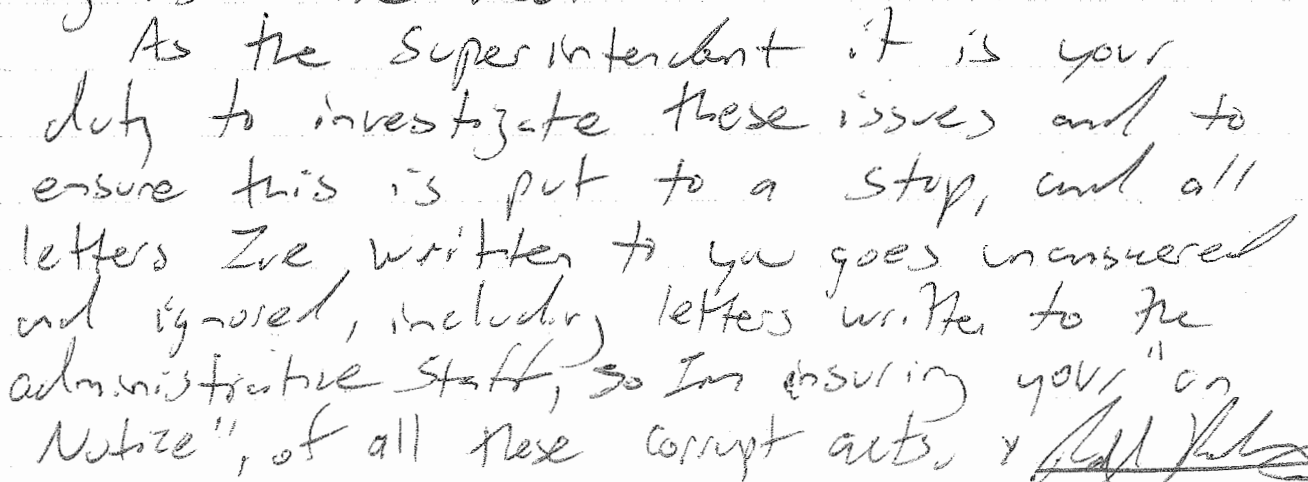 As the Superintendent it is your
duty to investigate these issues and to
ensure this is put to a stop, and all
letters Ive written to you goes unanswered
and ignored, including letters written to the
administrative Staff, so Im ensuring your "on
Notice", of all these corrupt acts. x